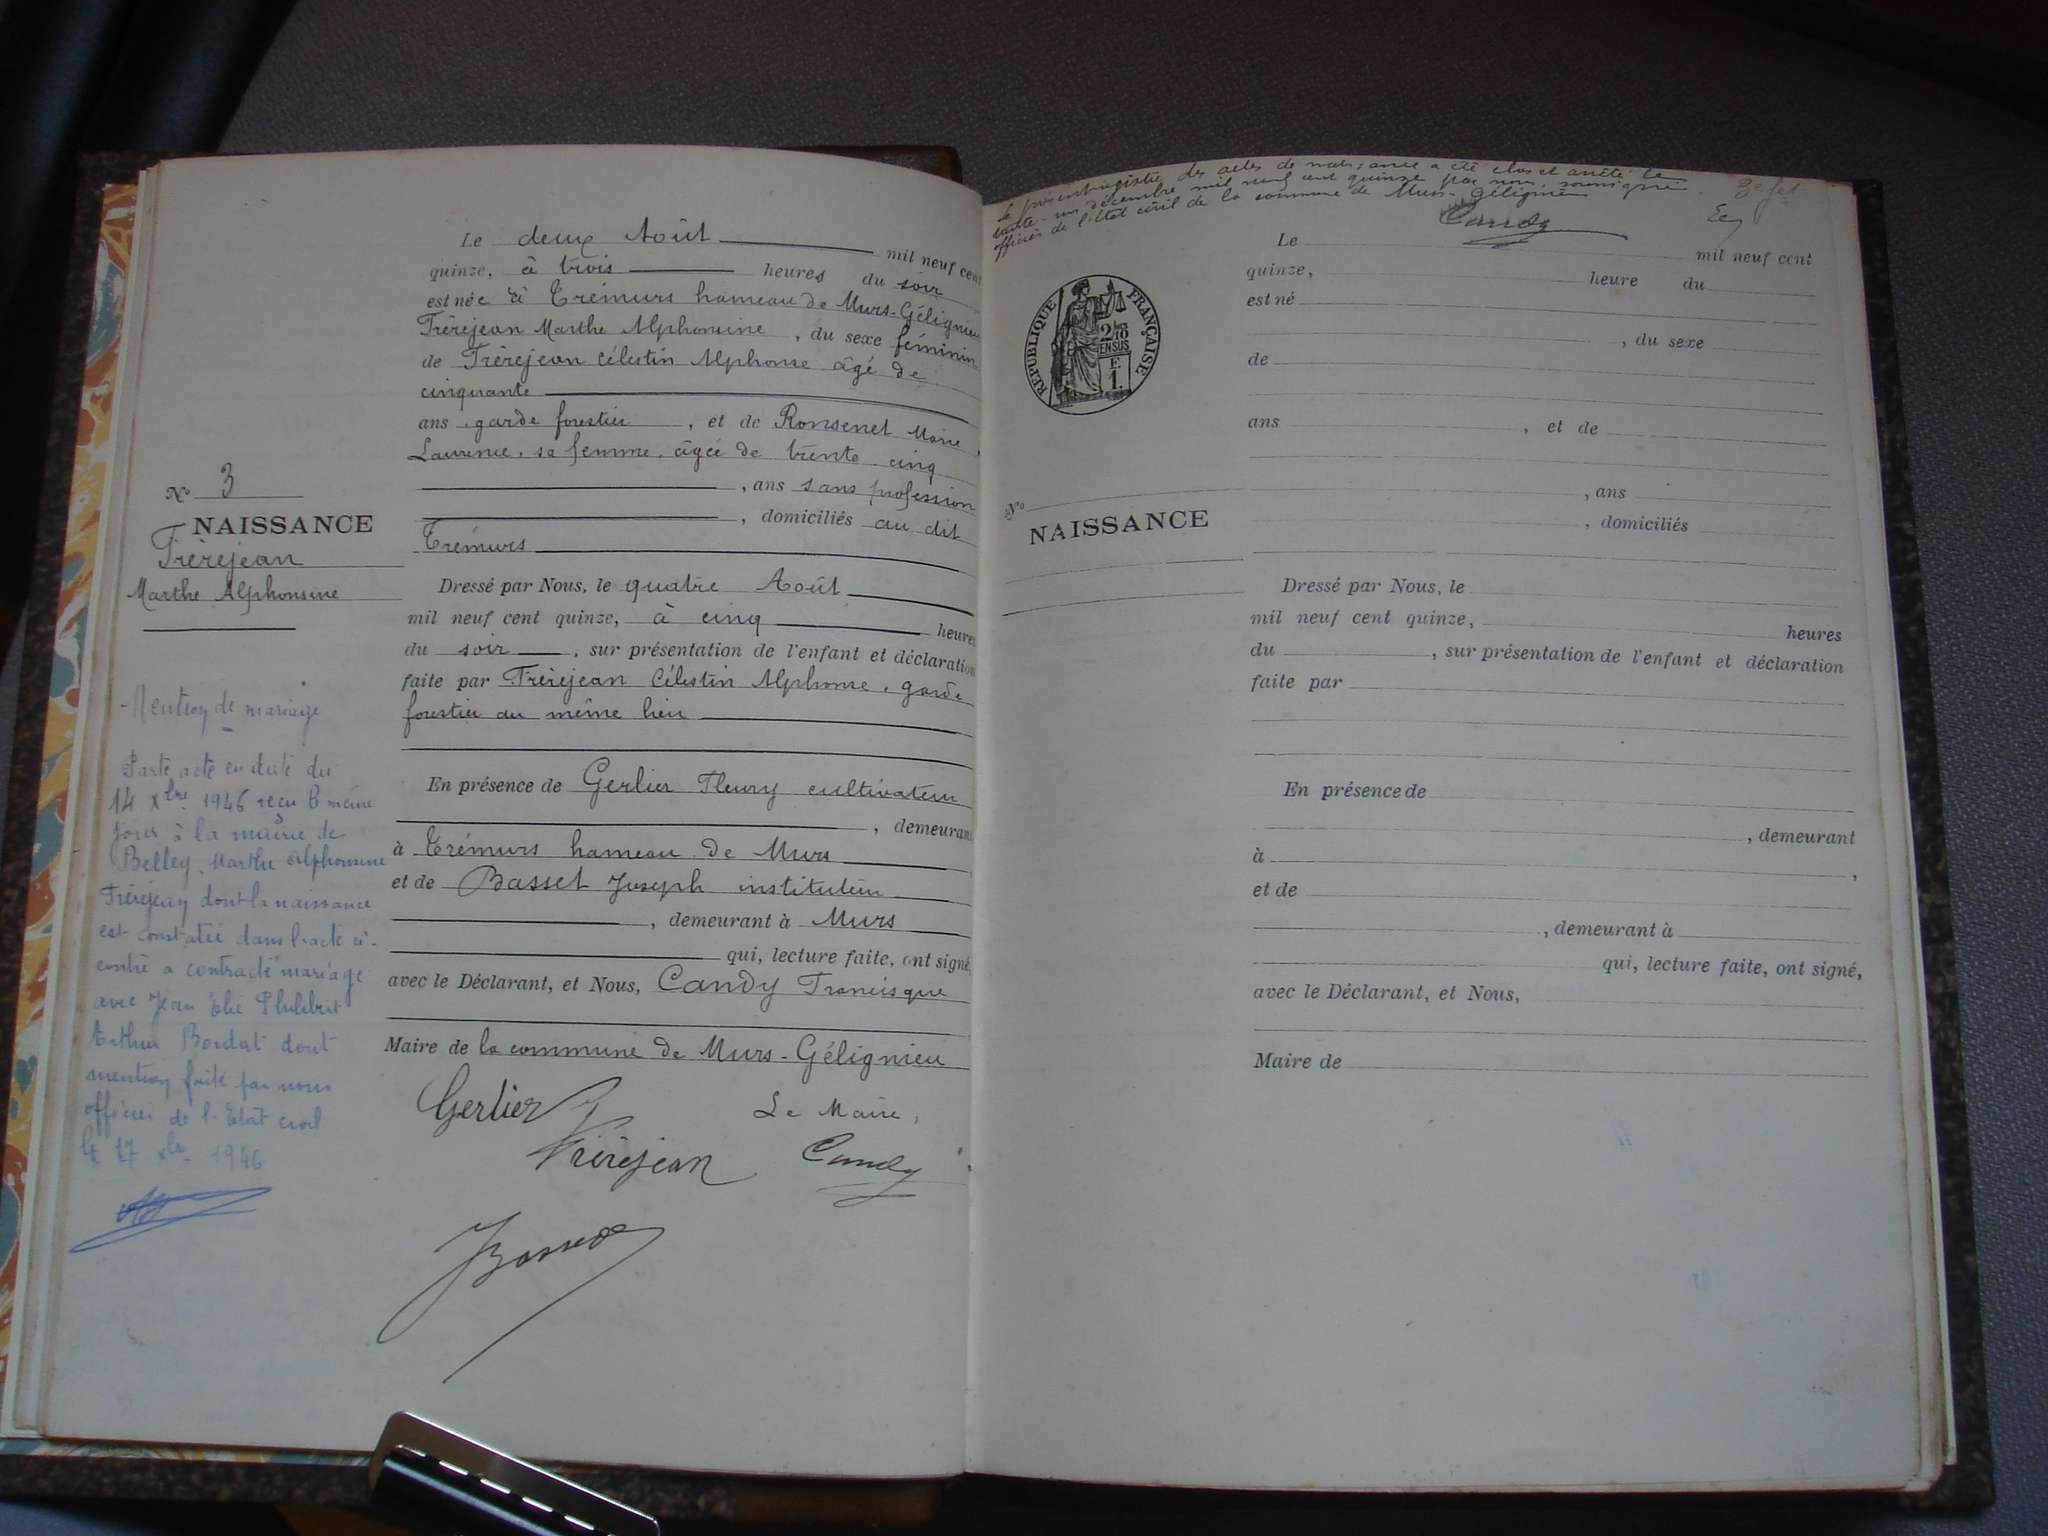 Le deux Août mil neuf cent
quinze, à trois heures du soir
est née à Trémurs hameau de Murs-Gélignieu
Frèrejean Marthe Alphonsine, du sexe féminin
de Frèrejean Célestin Alphonse âgé de
cinquante
ans garde forestier, et de Ronsenet Marie
Laurence, sa femme, âgée de trente cinq
, ans sans profession
, domiciliés au dit
Trémurs
N° 3
NAISSANCE
Frèrejean
Marthe Alphonsine
Dressé par Nous, le quatre Août
mil neuf cent quinze, à cinq heures
du soir, sur présentation de l'enfant et déclaration
faite par Frèrejean Célestin Alphonse, garde
forestier au même lieu
En présence de Gerlier Fleury cultivateur
, demeurant
à Trémurs hameau de Murs
et de Basset Joseph instituteur
, demeurant à Murs
qui, lecture faite, ont signé,
avec le Déclarant, et Nous, Candy Francisque
Maire de la commune de Murs-Gélignieu
Gerlier
Frèrejean
Le Maire,
Candy
JBasset
Mention de mariage
Par acte en date du
14 Xbre 1946 reçu le même
jour à la mairie de
Belley, Marthe Alphonsine
Frèrejean dont la naissance
est constatée dans l'acte ci-
contre a contracté mariage
avec Jean Élie Philibert
Arthur Bordat dont
mention faite par nous
officier de l'Etat civil
le 17 Xbre 1946
Le présent registre des actes de naissance a été clos et arrêté le
trente-un décembre mil neuf cent quinze par nous, soussigné
officier de l'état civil de la commune de Murs-Gélignieu
Candy
RÉPUBLIQUE FRANÇAISE
2 10es
EN SUS
E
1.
Le mil neuf cent
quinze, heure du
est né
, du sexe
de
ans , et de
, ans
, domiciliés
N°
NAISSANCE
Dressé par Nous, le
mil neuf cent quinze, heures
du , sur présentation de l'enfant et déclaration
faite par
En présence de
, demeurant
à ,
et de
, demeurant à
qui, lecture faite, ont signé,
avec le Déclarant, et Nous,
Maire de